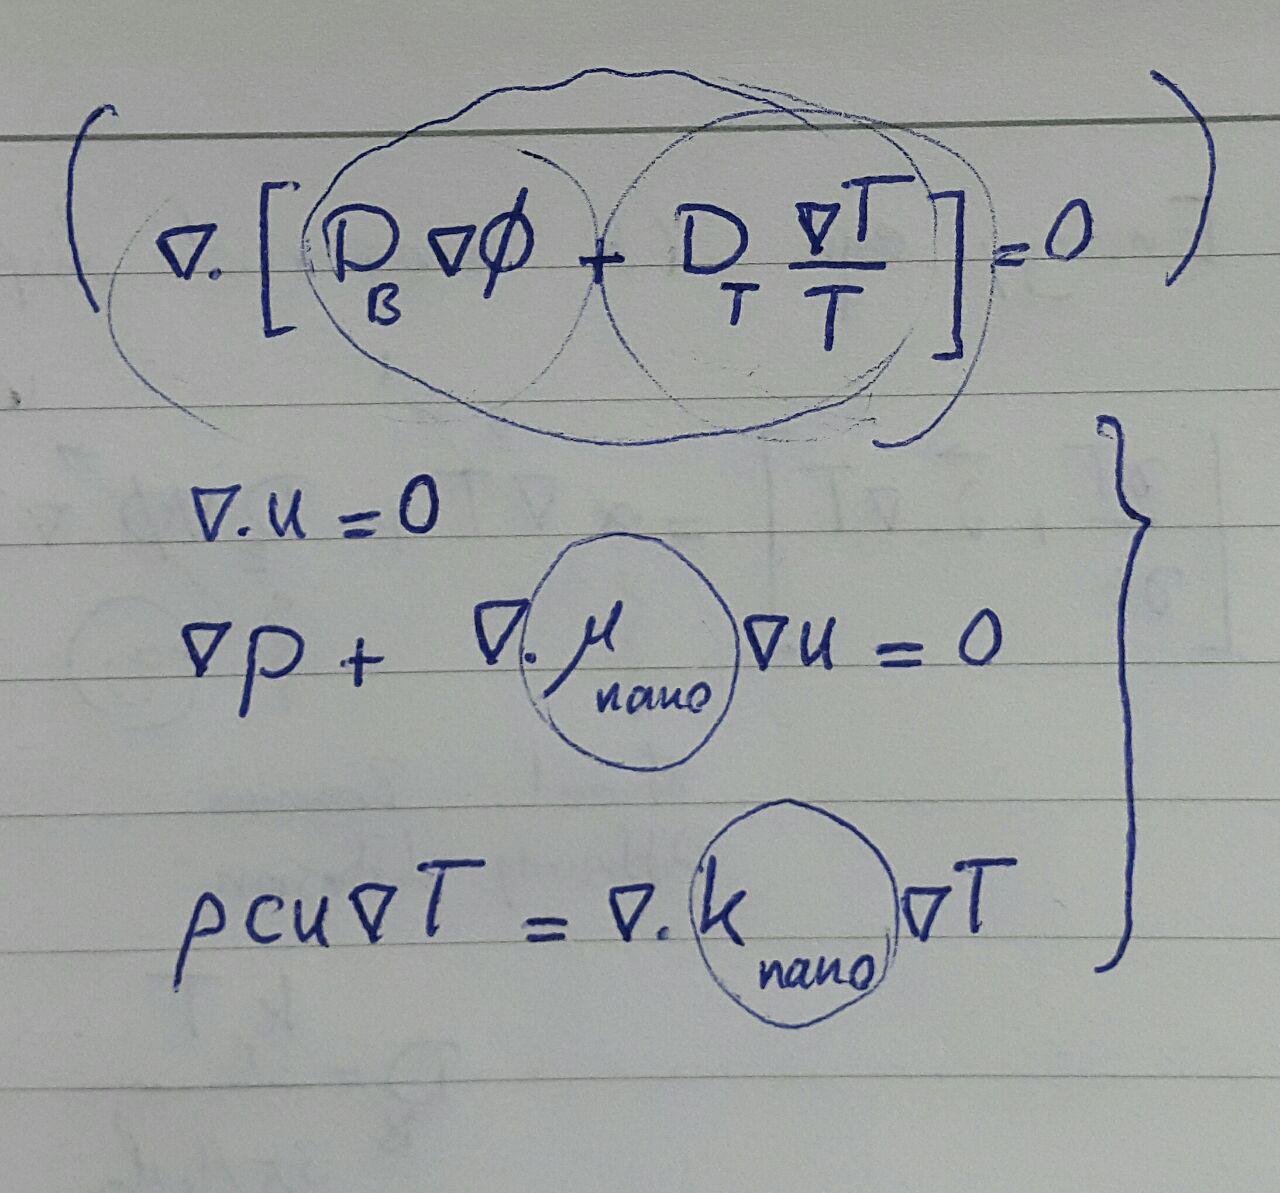 ( ∇. [ D_B ∇ϕ + D_T ∇T/T ] = 0 )
∇.u = 0
∇p + ∇.μ_nano ∇u = 0
ρcu∇T = ∇.k_nano ∇T